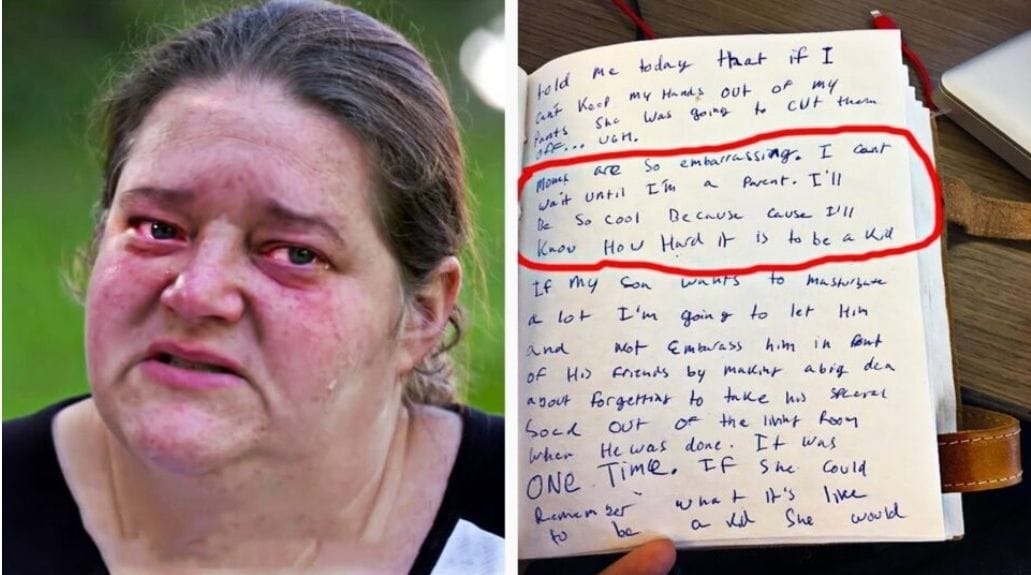 told me today that if I
can't keep my Hands out of my
Pants she was going to cut them
off... UGH.
Moms are so embarrassing. I cant
wait until I'm a Parent. I'll
Be so cool Because cause I'll
Know How Hard it is to be a Kid
If my son wants to masturbate
a lot I'm going to let Him
and not Embarass him in front
of His friends by making a big dea
about forgetting to take his special
Sock out of the living Room
when He was done. It was
ONE TIME. If she could
Remember what it's like
to be a kid she would